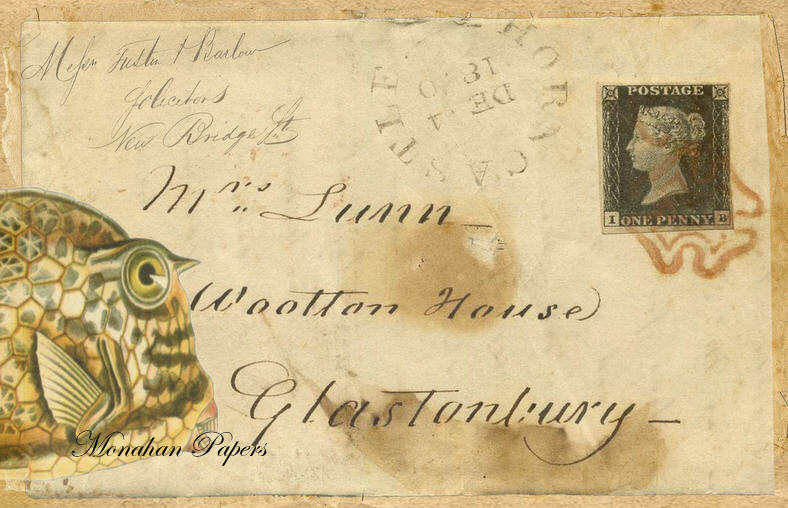 Messrs Fuston & Barlow
Solicitors
New Bridge St
CASTLE CARY
DE 4
1840
POSTAGE
I ONE PENNY B
Mrs. Lunn
Wootton House
Glastonbury
Monahan Papers